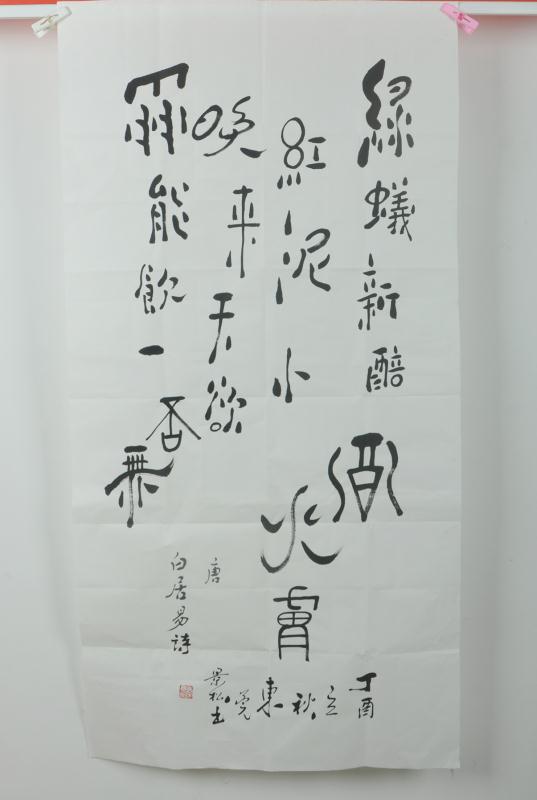 綠蟻新醅酒
紅泥小火膚
晚来天欲
雪能飲一否無
唐
白居易詩
丁酉立秋東莞景松书